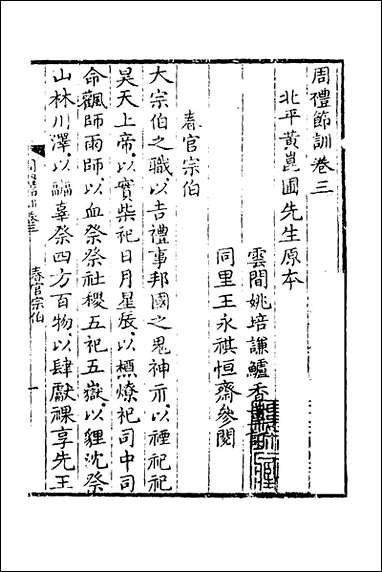 周禮節訓卷三
北平黃崑圃先生原本
雲間姚培謙鱸香
同里王永祺恒齋參閱
春官宗伯
大宗伯之職以吉禮事邦國之鬼神示以禋祀祀
昊天上帝以實柴祀日月星辰以槱燎祀司中司
命飌師雨師以血祭祭社稷五祀五嶽以貍沈祭
山林川澤以疈辜祭四方百物以肆獻祼享先王
春官宗伯
一